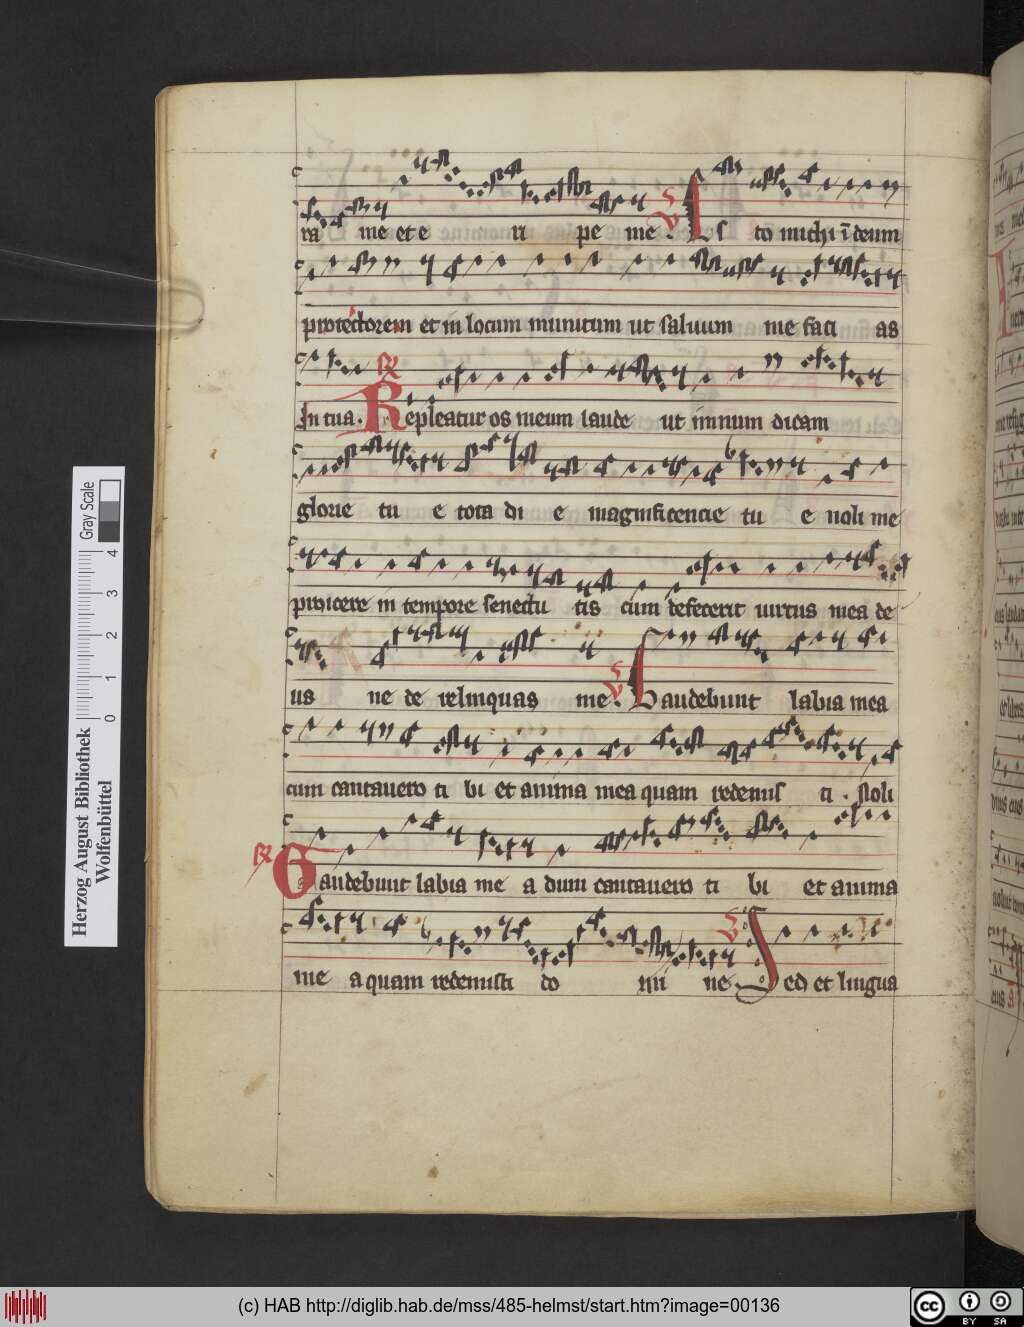 ra me et e ri pe me. V Esto michi ī deum
protectorem et in locum munitum ut saluum me faci as
In tua. R Repleatur os meum laude ut imnum dicam
glorie tu e tota di e magnificencie tu e noli me
proicere in tempore senectu tis cum defecerit uirtus mea de
us ne de relinquas me. V Gaudebunt labia mea
cum cantauero ti bi et anima mea quam redemis ti. Noli
R Gaudebunt labia me a dum cantauero ti bi et anima
me a quam redemisti do mi ne V Sed et lingua
Herzog August Bibliothek
Wolfenbüttel
Gray Scale
0 1 2 3 4
(c) HAB http://diglib.hab.de/mss/485-helmst/start.htm?image=00136
cc BY SA